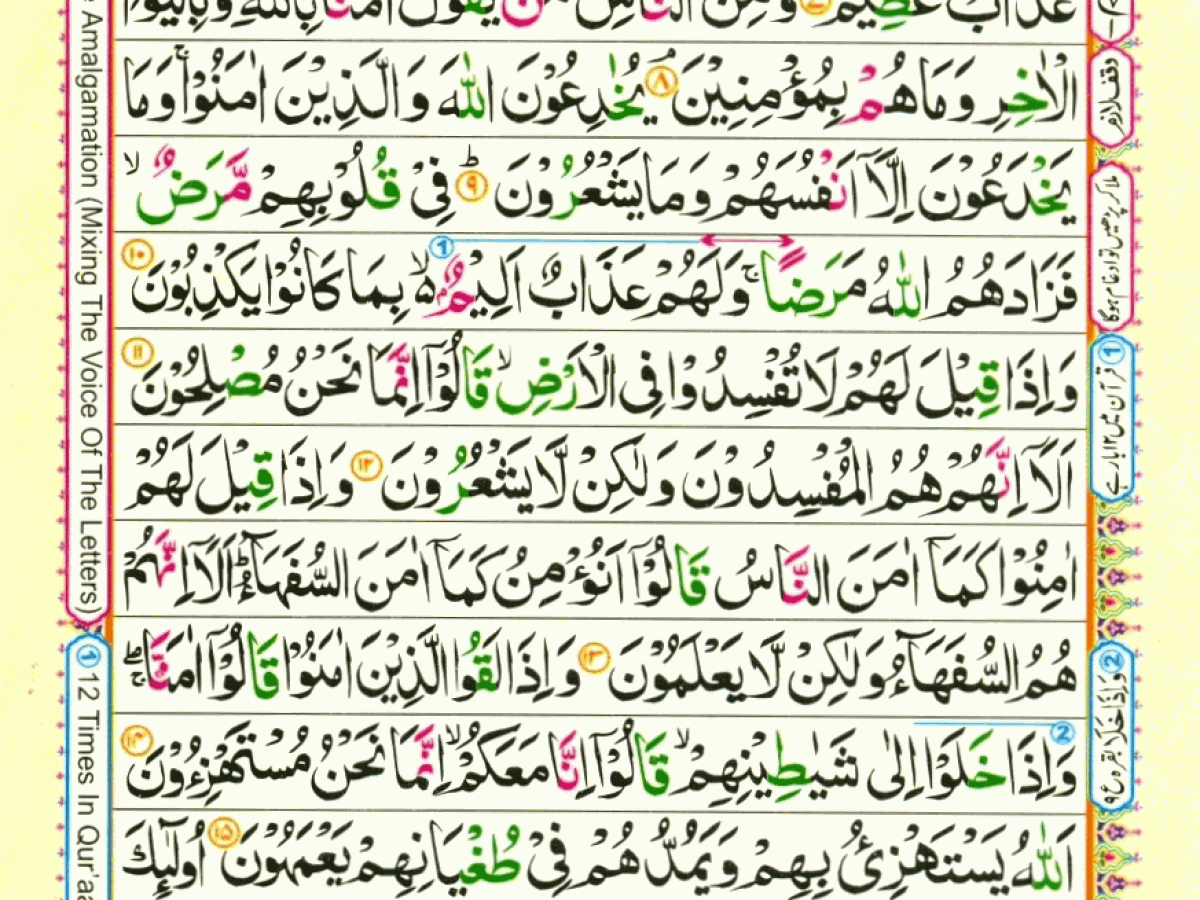 عَذَابٌ عَظِيْمٌ ۝۷ وَمِنَ النَّاسِ مَنْ يَّقُوْلُ اٰمَنَّا بِاللّٰهِ وَبِالْيَوْمِ
الْاٰخِرِ وَمَا هُمْ بِمُؤْمِنِيْنَ ۝۸ يُخٰدِعُوْنَ اللّٰهَ وَالَّذِيْنَ اٰمَنُوْا ۚ وَمَا
يَخْدَعُوْنَ اِلَّاۤ اَنْفُسَهُمْ وَمَا يَشْعُرُوْنَ ۝۹ؕ فِيْ قُلُوْبِهِمْ مَّرَضٌ ۙ
فَزَادَهُمُ اللّٰهُ مَرَضًا ۚ وَلَهُمْ عَذَابٌ اَلِيْمٌۢ ۙ۬ بِمَا كَانُوْا يَكْذِبُوْنَ ۝۱۰
وَاِذَا قِيْلَ لَهُمْ لَا تُفْسِدُوْا فِى الْاَرْضِ ۙ قَالُوْۤا اِنَّمَا نَحْنُ مُصْلِحُوْنَ ۝۱۱
اَلَاۤ اِنَّهُمْ هُمُ الْمُفْسِدُوْنَ وَلٰكِنْ لَّا يَشْعُرُوْنَ ۝۱۲ وَاِذَا قِيْلَ لَهُمْ
اٰمِنُوْا كَمَاۤ اٰمَنَ النَّاسُ قَالُوْۤا اَنُؤْمِنُ كَمَاۤ اٰمَنَ السُّفَهَآءُ ؕ اَلَاۤ اِنَّهُمْ
هُمُ السُّفَهَآءُ وَلٰكِنْ لَّا يَعْلَمُوْنَ ۝۱۳ وَاِذَا لَقُوا الَّذِيْنَ اٰمَنُوْا قَالُوْۤا اٰمَنَّا ۖۚ
وَاِذَا خَلَوْا اِلٰى شَيٰطِيْنِهِمْ ۙ قَالُوْۤا اِنَّا مَعَكُمْ ۙ اِنَّمَا نَحْنُ مُسْتَهْزِءُوْنَ ۝۱۴
اَللّٰهُ يَسْتَهْزِئُ بِهِمْ وَيَمُدُّهُمْ فِيْ طُغْيَانِهِمْ يَعْمَهُوْنَ ۝۱۵ اُولٰٓئِكَ
وقف لازم
ملا کر پڑھیں تو ادغام ہوگا
① قرآن میں ۱۲ بار ہے
② وَاِذَا خَلَا بقرہ ع ۹
Amalgamation (Mixing The Voice Of The Letters)
① 12 Times In Qur'aa